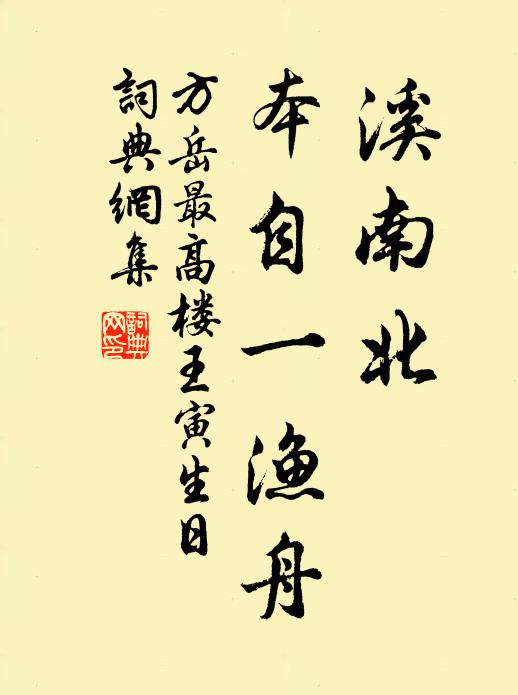 溪南北
本自一渔舟
方岳最高楼王寅生日
詞典網集
詞典网印